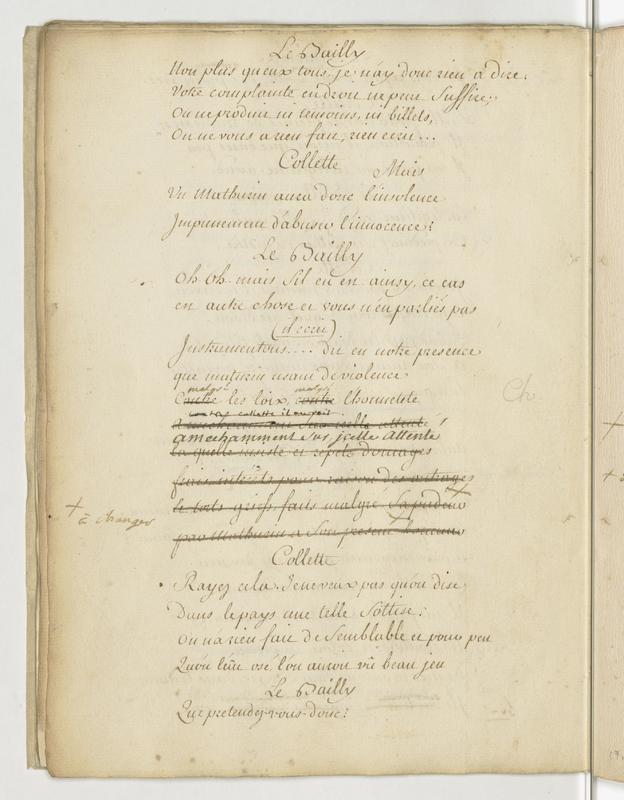 Le Bailly
Non plus qu'eux tous, je n'ay donc rien a dire.
Votre complainte en droit ne peut Suffire;
On ne produit ni temoins, ni billets,
On ne vous a rien fait, rien ecrit...
Collette
Mais
Un Mathurin aura donc l'insolence
Impunement d'abuser l'innocence?
Le Bailly
Oh Oh mais S'il en est ainsy, ce cas
est autre chose et vous n'en parliés pas
(il ecrit)
Instrumentons.... Dit en notre presence
que maturin usant de violence
malgré malgré
Contre les loix, contre l'honnetete
amechamment Sur jcelle Attenté
la quelle insiste et repete domages
frais interêts pour raison des outrages
et torts griefs faits malgré Sa pudeur
par Mathurin a Son present honneur
+ à changer
Ch
Collette
Rayez cela. Je ne veux pas qu'on dise
Dans le pays une telle Sottise:
On n'a rien fait de Semblable et pour peu
Qu'on l'eût osé l'on auroit vû beau jeu
Le Bailly
Que pretendez-vous donc?